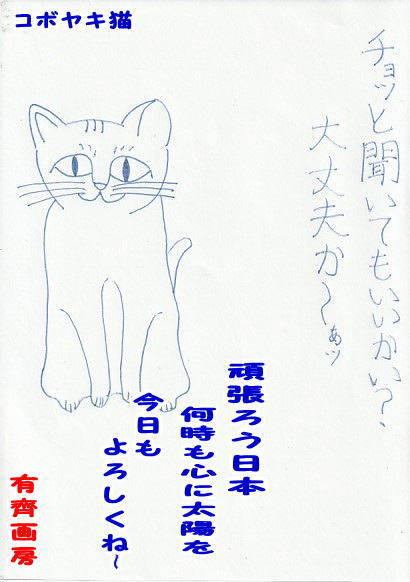 コボヤキ猫
チョッと聞いてもいいかい?、
大丈夫か～ぁッ
頑張ろう日本
何時も心に太陽を
今日も
よろしくね~
有齊画房